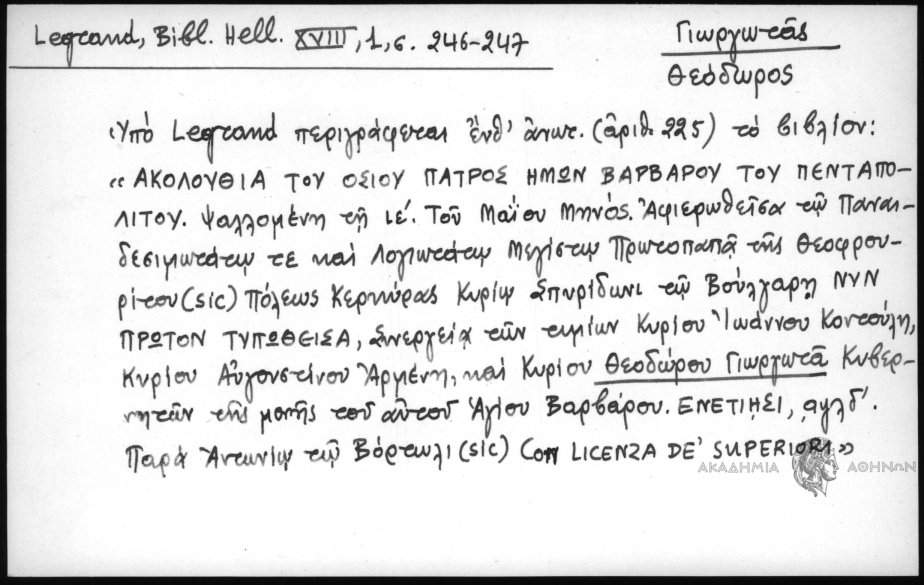 Legrand, Bibl. Hell. XVIII, 1, σ. 246-247
Γιωργωτᾶς
Θεόδωρος
Ὑπό Legrand περιγράφεται ἔνθ' ἀνωτ. (ἀριθ. 225) τό βιβλίον:
«ΑΚΟΛΟΥΘΙΑ ΤΟΥ ΟΣΙΟΥ ΠΑΤΡΟΣ ΗΜΩΝ ΒΑΡΒΑΡΟΥ ΤΟΥ ΠΕΝΤΑΠΟ-
ΛΙΤΟΥ. Ψαλλομένη τῇ ιε΄. Τοῦ Μαΐου Μηνός. Ἀφιερωθεῖσα τῷ Παναι-
δεσιμωτάτῳ τε καί Λογιωτάτῳ Μεγίστῳ Πρωτοπαπᾷ τῆς Θεοφρου-
ρίτου (sic) Πόλεως Κερκύρας Κυρίῳ Σπυρίδωνι τῷ Βούλγαρῃ ΝΥΝ
ΠΡΩΤΟΝ ΤΥΠΩΘΕΙΣΑ, Συνεργείᾳ τῶν τιμίων Κυρίου Ἰωάννου Κοντούλη,
Κυρίου Αὐγουστίνου Ἀρμένη, καί Κυρίου Θεοδώρου Γιωργωτᾶ Κυβερ-
νητῶν τῆς μονῆς τοῦ αὐτοῦ Ἁγίου Βαρβάρου. ΕΝΕΤΙΗΣΙ, ͵αψλδ΄.
Παρά Ἀντωνίῳ τῷ Βόρτωλι (sic) Con LICENZA DE' SUPERIORI»
ΑΚΑΔΗΜΙΑ ΑΘΗΝΩΝ